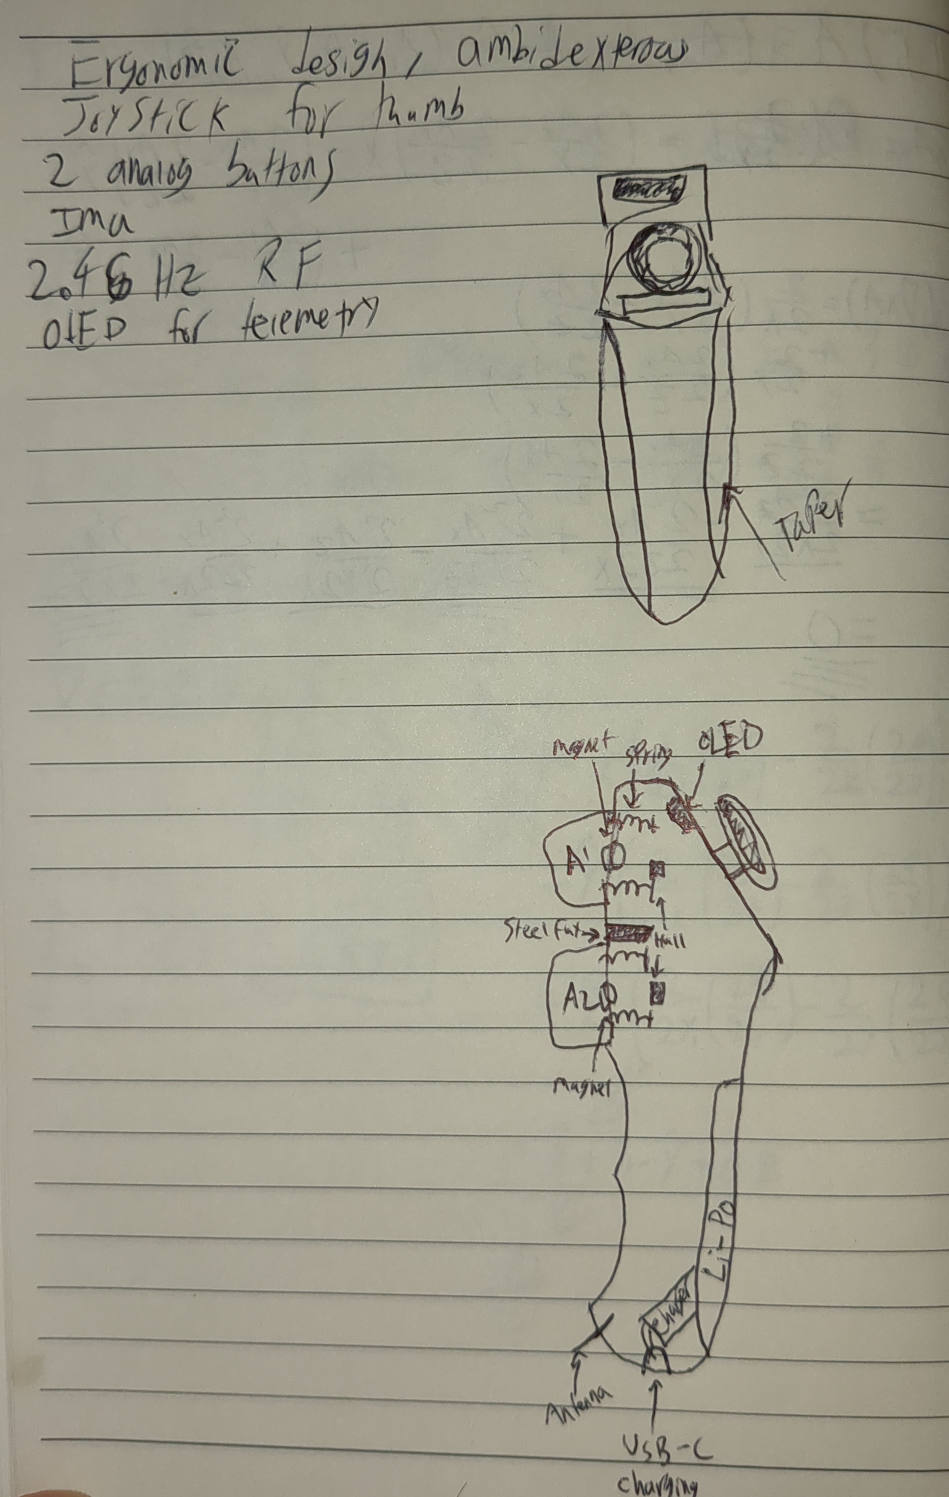 Ergonomic design, ambidexterous
Joystick for thumb
2 analog buttons
Imu
2.4G Hz RF
OLED for telemetry
Taper
magnet spring OLED
A1
Steel
Hall
A2
magnet
Li-Po
Antenna
USB-C
charging